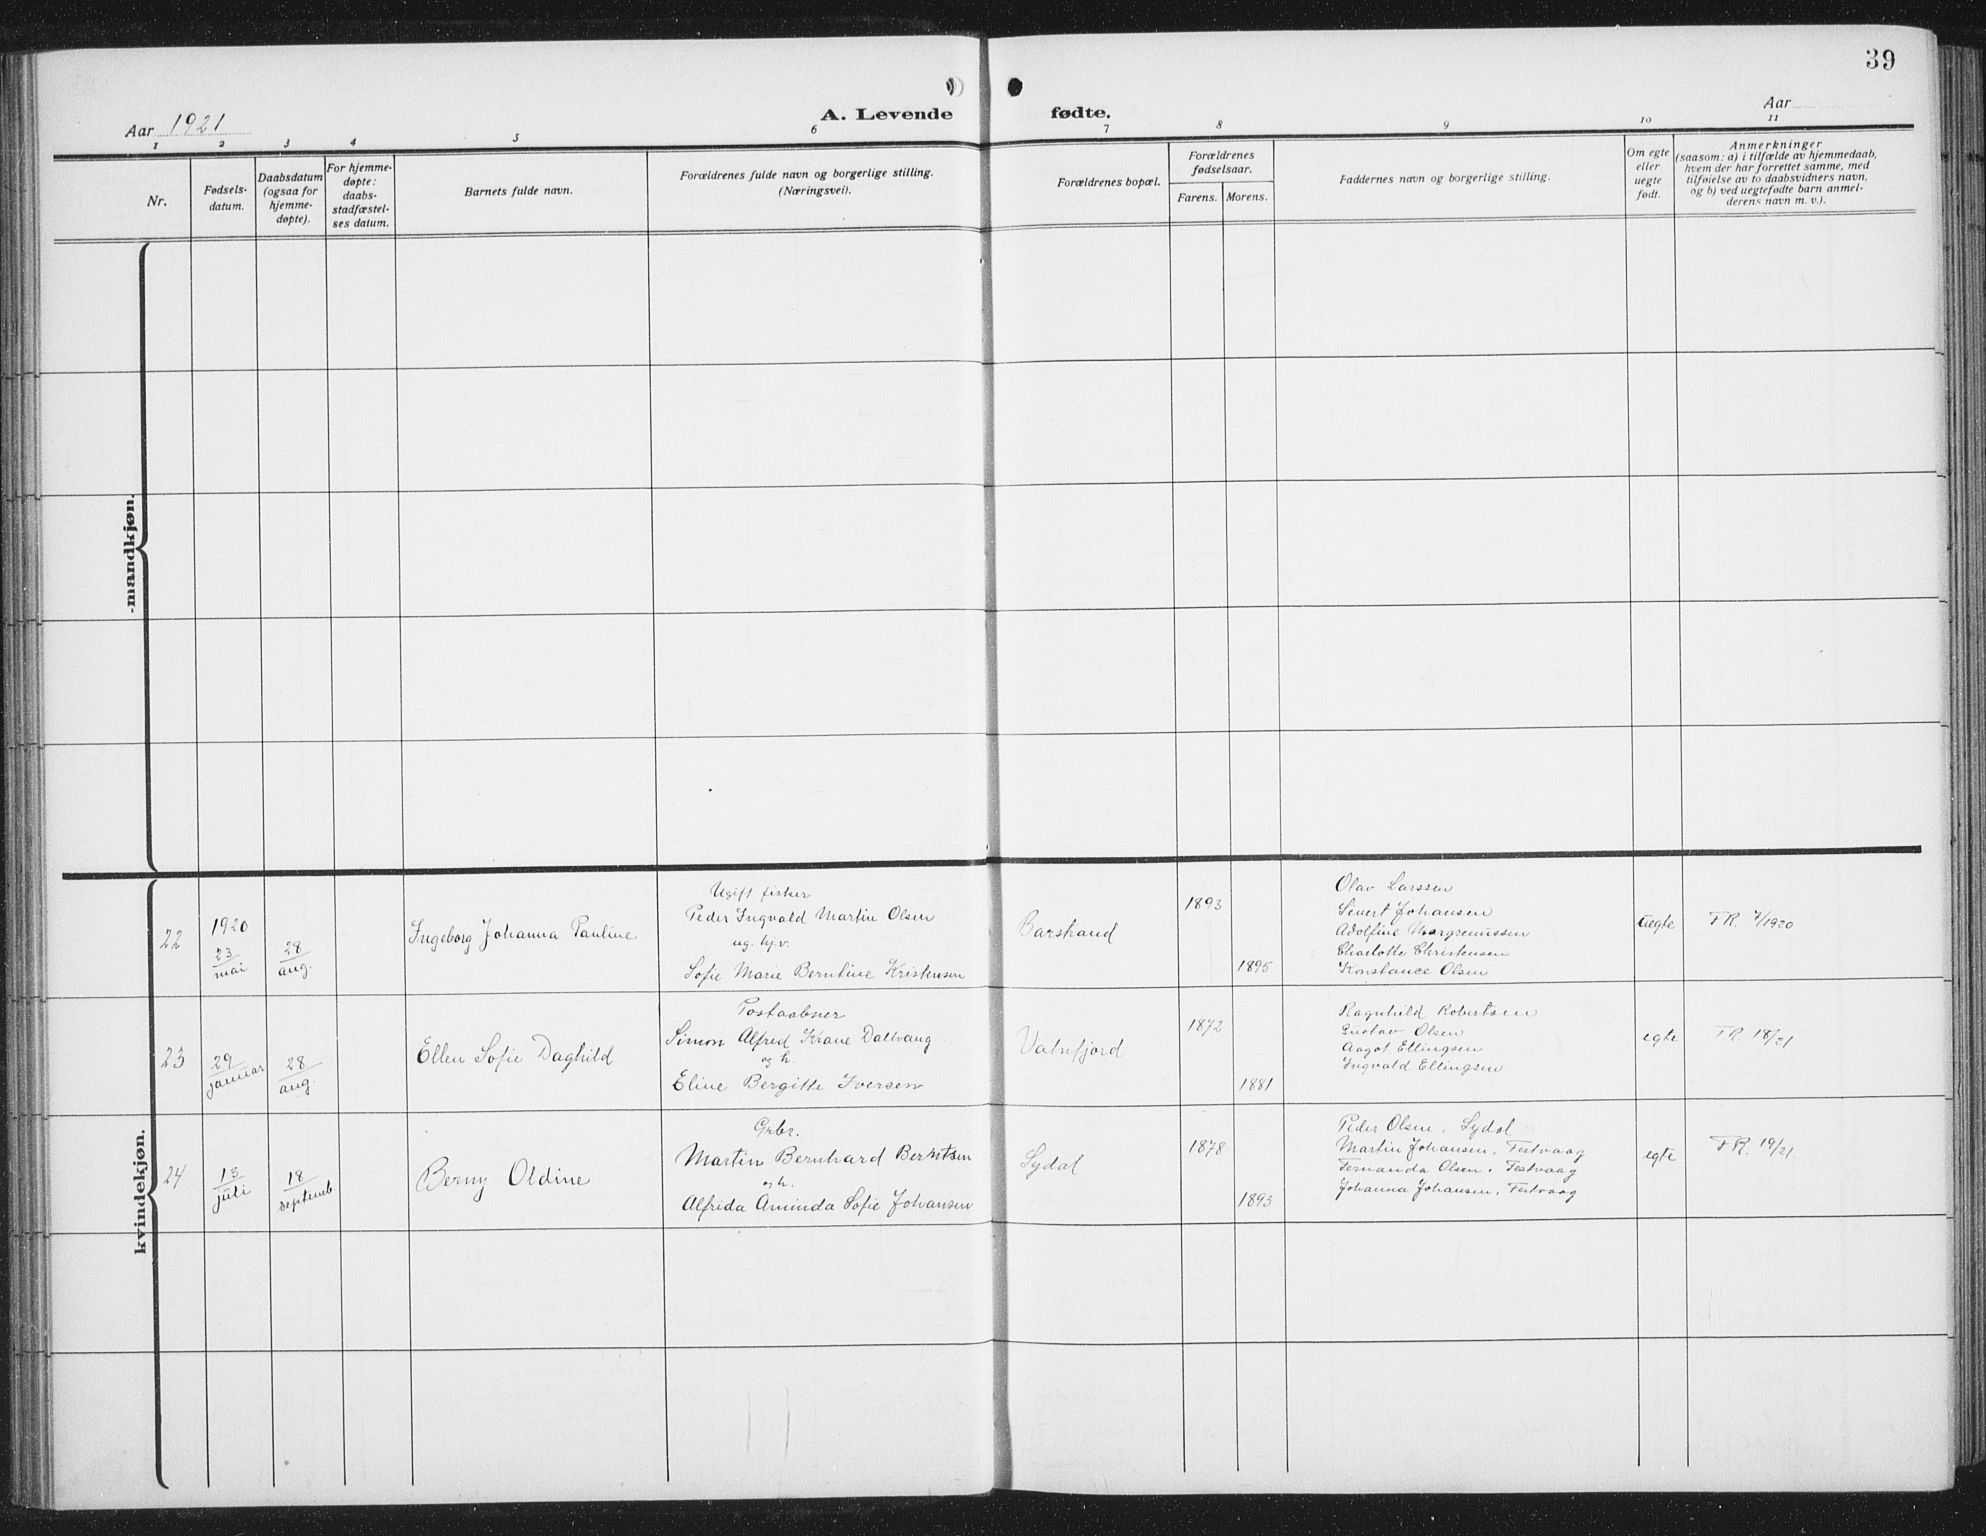 39
Aar 1921
A. Levende fødte.
Aar
1 2 3 4 5 6 7 8 9 10 11
Nr.
Fødsels-
datum.
Daabsdatum
(ogsaa for
hjemme-
døpte).
For hjemme-
døpte:
daabs-
stadfæstel-
ses datum.
Barnets fulde navn.
Forældrenes fulde navn og borgerlige stilling.
(Næringsvei).
Forældrenes bopæl.
Forældrenes
fødselsaar.
Farens. Morens.
Faddernes navn og borgerlige stilling.
Om egte
eller
uegte
født.
Anmerkninger
(saasom: a) i tilfælde av hjemmedaab,
hvem der har forrettet samme, med
tilføielse av to daabsvidners navn,
og b) ved uegtefødte barn anmel-
derens navn m. v.).
-mandkjøn.
kvindekjøn.
22
1920
23
mai
28
aug.
Ingeborg Johanna Pauline
Ugift fisker
Peder Ingvald Martin Olsen
ug. hj.v.
Sofie Marie Berntine Kristensen
Barstrand
1893
1895
Olav Larssen
Sivert Johansen
Adolfine
Charlotte Christensen
Konstance Olsen
uegte
FR. 7/1920
23
29
januar
28
aug.
Ellen Sofie Daghild
Postaabner
Simon Alfred Krane Dalvaag
og h.
Eline Bergitte Iversen
Vatnfjord
1872
1881
Ragnhild Robertsen
Gustav Olsen
Aagot Ellingsen
Ingvald Ellingsen
egte
FR. 18/21
24
13
juli
18
septemb
Berny Oldine
Grbr.
Martin Bernhard Berntsen
og h.
Alfrida Aminda Sofie Johansen
Sydal
1878
1893
Peder Olsen, Sydal
Martin Johansen, Festvaag
Fernanda Olsen, Festvaag
Johanna Johansen, Festvaag
egte
FR. 19/21.